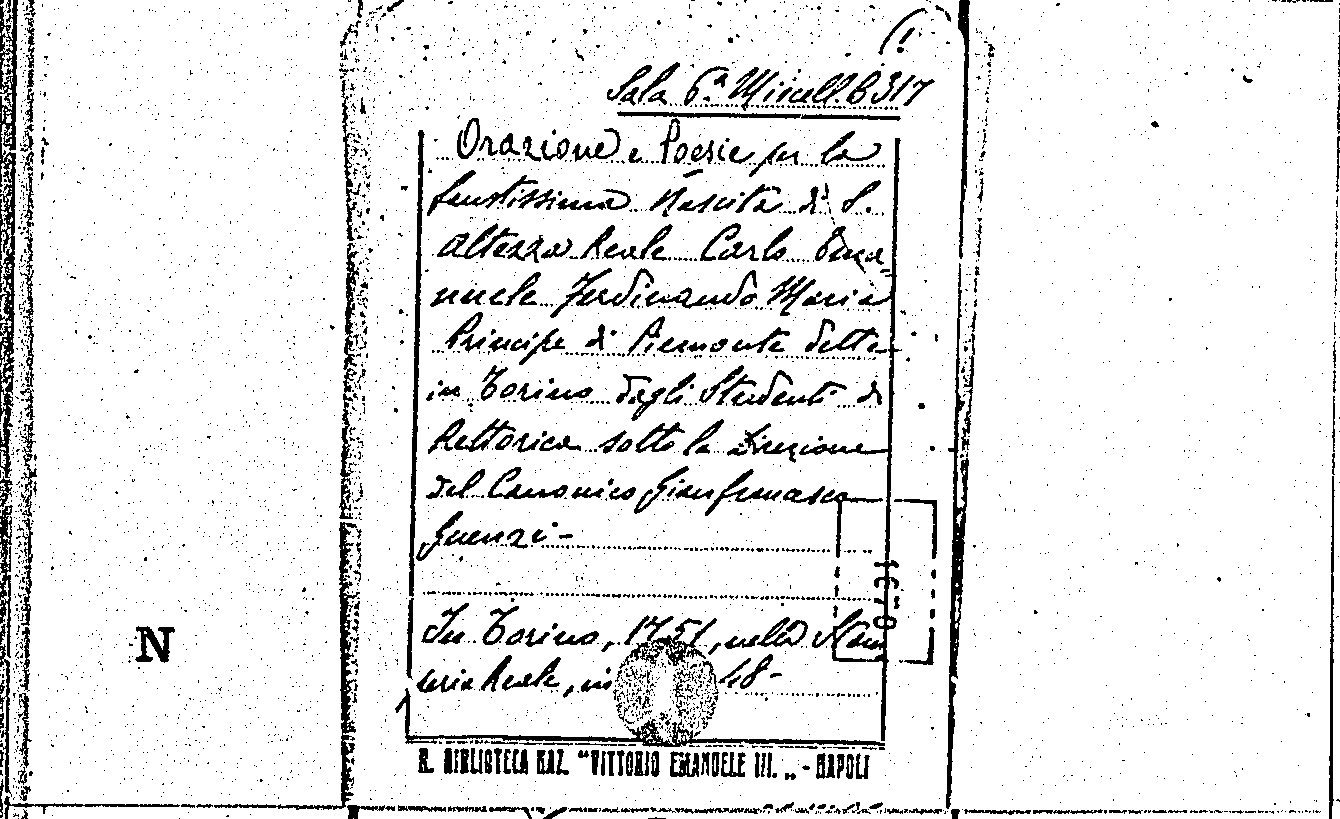 Sala 6.ª Miscell. B 317
Orazione e Poesie per la
faustissima Nascita di S.
Altezza Reale Carlo Ema=
nuele Ferdinando Maria
Principe di Piemonte dette
in Torino dagli Studenti di
Rettorica sotto la Direzione
del Canonico Gianfrancesco
Guenzi -
In Torino, 1751, nella Stam
peria Reale, in 48 -
N
R. BIBLIOTECA NAZ. "VITTORIO EMANUELE III. „ - NAPOLI